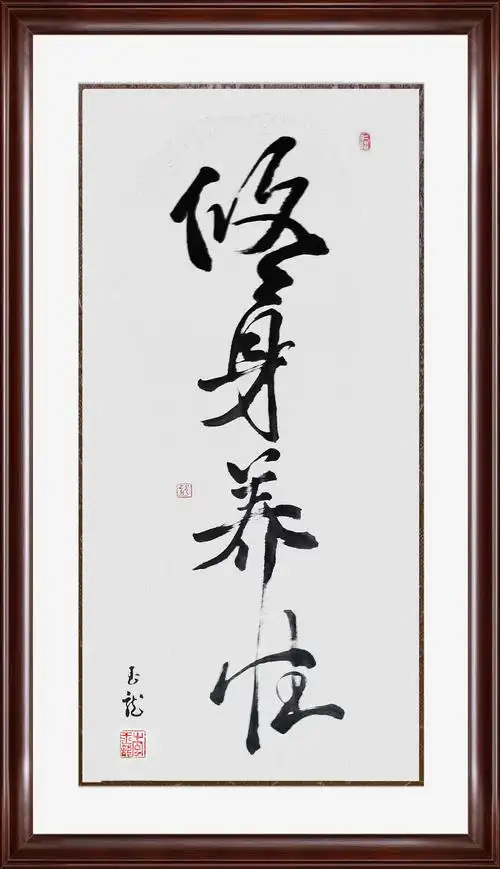 修身养性
玉龙